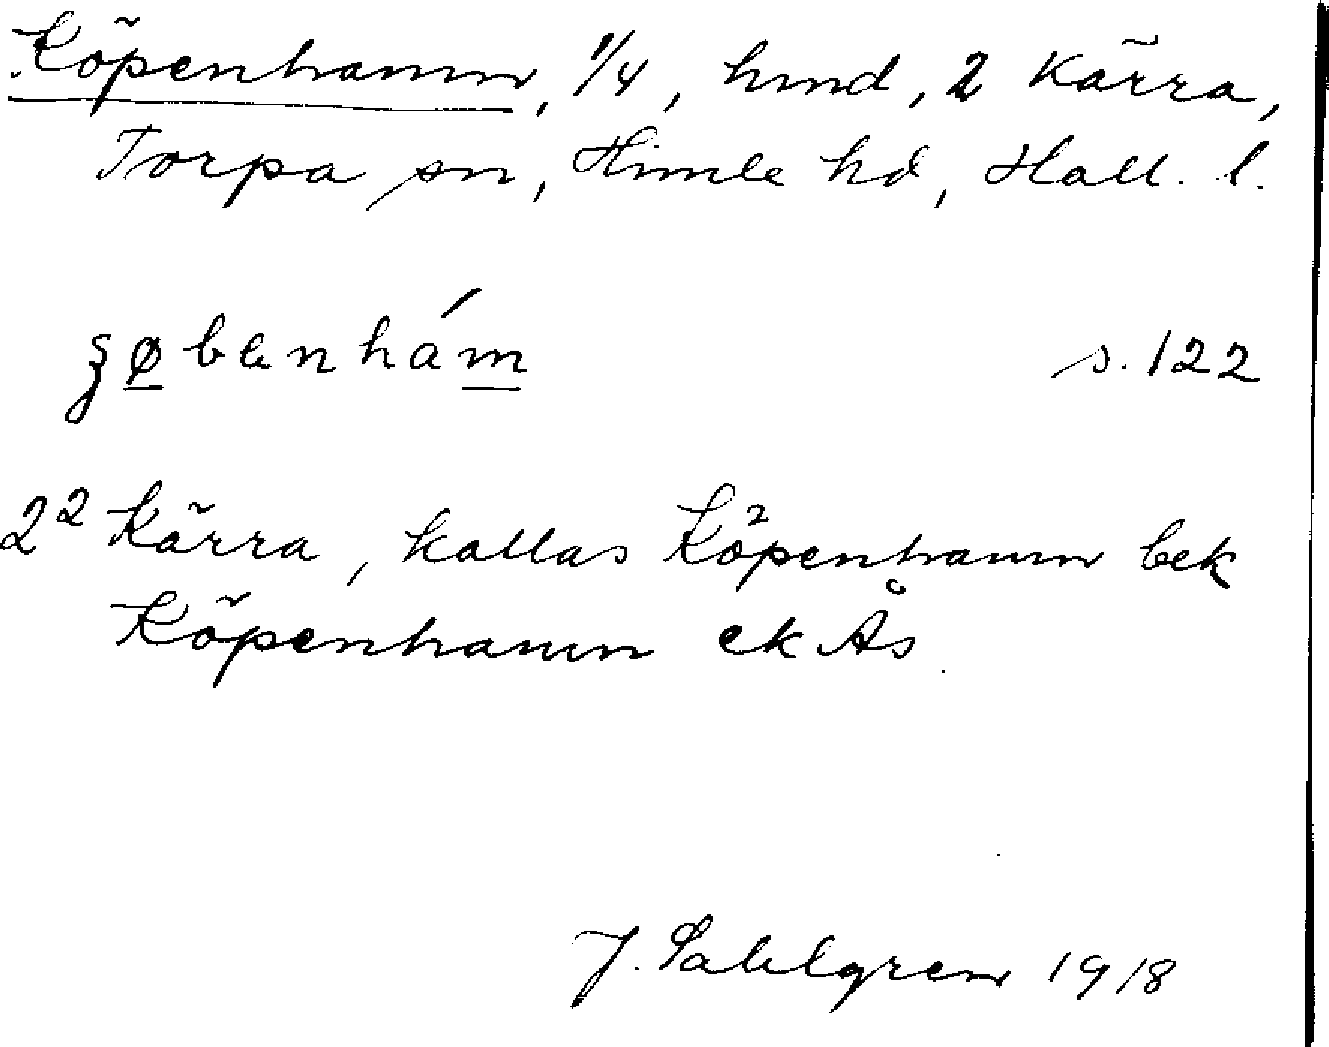 Köpenhamn, 1/4, hmd, 2 Kärra,
Torpa sn, Himle hd, Hall. l.
s. 122
2² Kärra, kallas Köpenhamn bek
Köpenhamn ek Ås
J. Sahlgren 1918